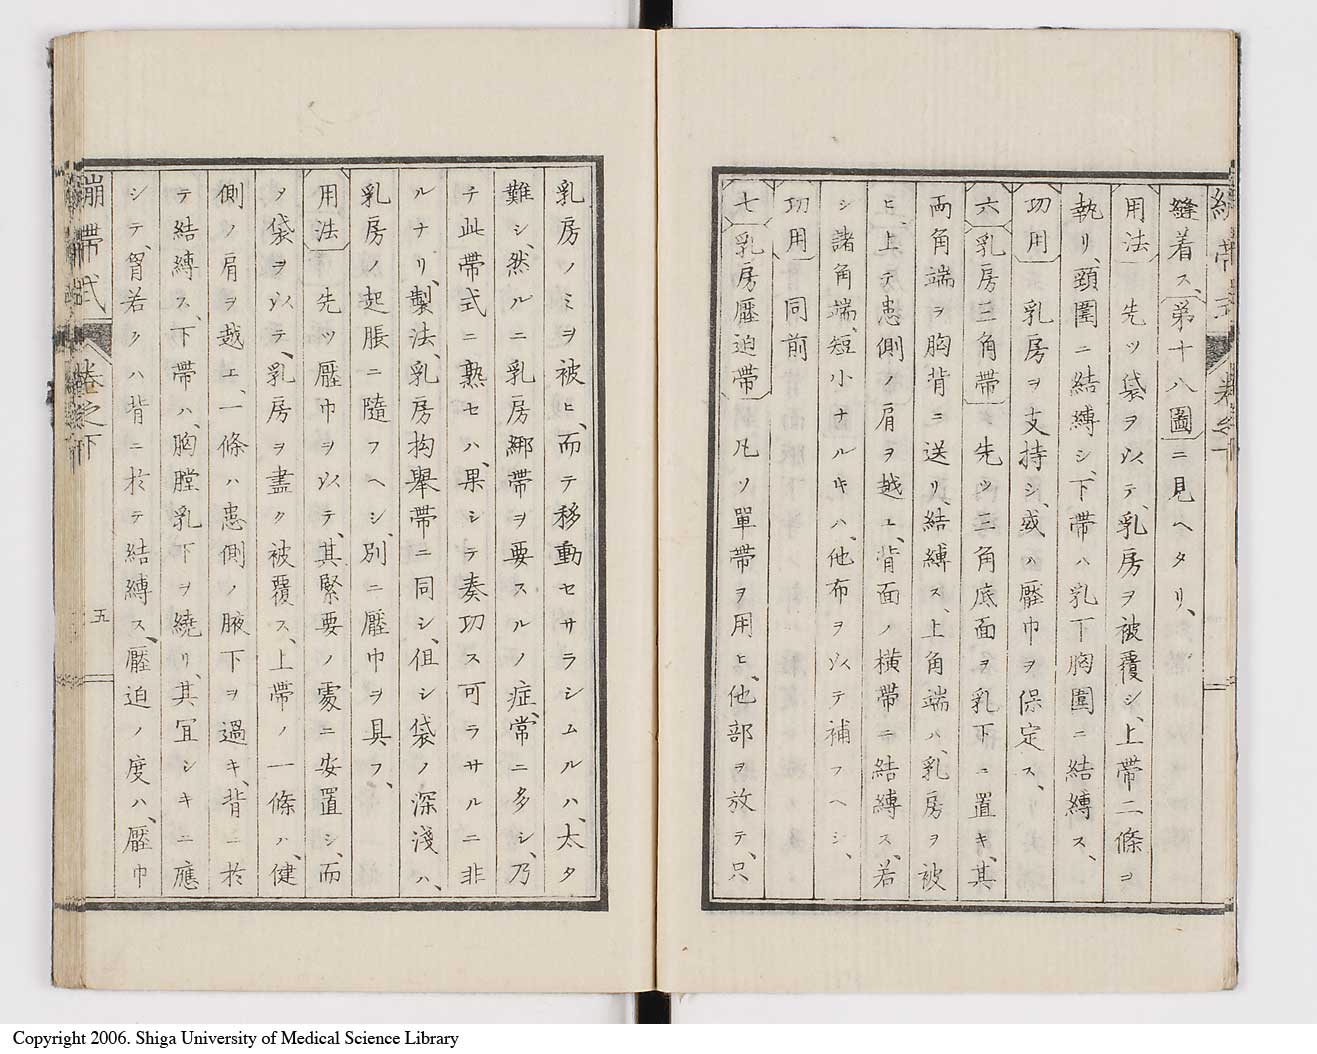 縫着ス、第十八圖ニ見ヘタリ、
用法 先ツ袋ヲ以テ、乳房ヲ被覆シ、上帶二條ヲ
執リ、頸圍ニ結縛シ、下帶ハ乳下胸圍ニ結縛ス、
功用 乳房ヲ支持シ、或ハ壓巾ヲ保定ス、
六 乳房三角帶 先ツ三角底面ヲ乳下ニ置キ、其
兩角端ヲ胸背ニ送リ、結縛ス、上角端ハ、乳房ヲ被
ヒ、上テ患側ノ肩ヲ越ヱ、背面ノ横帶ニ結縛ス、若
シ諸角端、短小ナルキハ、他布ヲ以テ補フヘシ、
功用 同前
七 乳房壓迫帶 凡ソ單帶ヲ用ヒ、他部ヲ放テ、只
乳房ノミヲ被ヒ、而テ移動セサラシムルハ、太タ
難シ、然ルニ乳房綁帶ヲ要スルノ症、常ニ多シ、乃
チ此帶式ニ熟セハ、果シテ奏功ス可ラサルニ非
ルナリ、製法、乳房抅舉帶ニ同シ、但シ袋ノ深淺ハ、
乳房ノ起脹ニ隨フヘシ、別ニ壓巾ヲ具フ、
用法 先ツ壓巾ヲ以テ、其緊要ノ處ニ安置シ、而
ノ袋ヲ以テ、乳房ヲ盡ク被覆ス、上帶ノ一條ハ、健
側ノ肩ヲ越エ、一條ハ患側ノ腋下ヲ過キ、背ニ於
テ結縛ス、下帶ハ、胸膛乳下ヲ繞リ、其冝シキニ應
シテ、胷若クハ背ニ於テ結縛ス、壓迫ノ度ハ、壓巾
繃帶式 卷之下
五
Copyright 2006. Shiga University of Medical Science Library